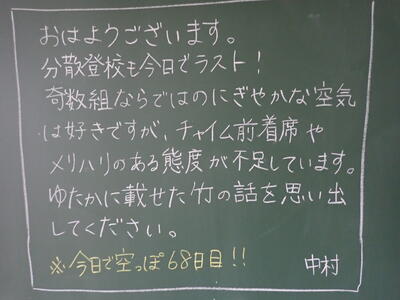 おはようございます。
分散登校も今日でラスト!
奇数組ならではのにぎやかな空気
は好きですが、チャイム前着席や
メリハリのある態度が不足しています。
ゆたかに載せた竹の話を思い出
してください。
※今日で空っぽ68日目!!
中村